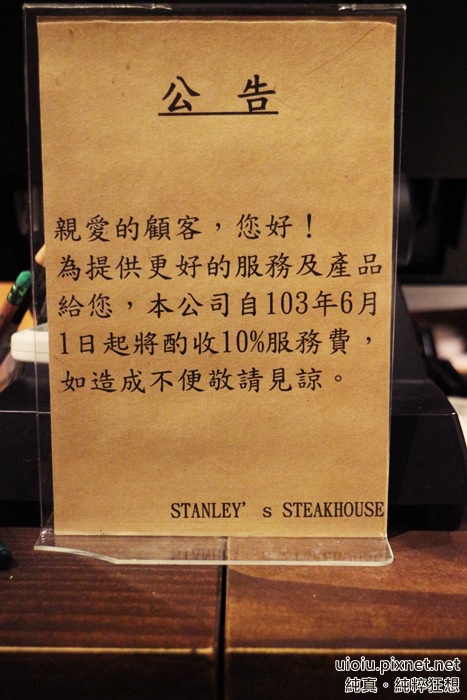 公 告
親愛的顧客，您好！
為提供更好的服務及產品
給您，本公司自103年6月
1日起將酌收10%服務費，
如造成不便敬請見諒。
STANLEY’s STEAKHOUSE
uioiu.pixnet.net
純真。純粹狂想